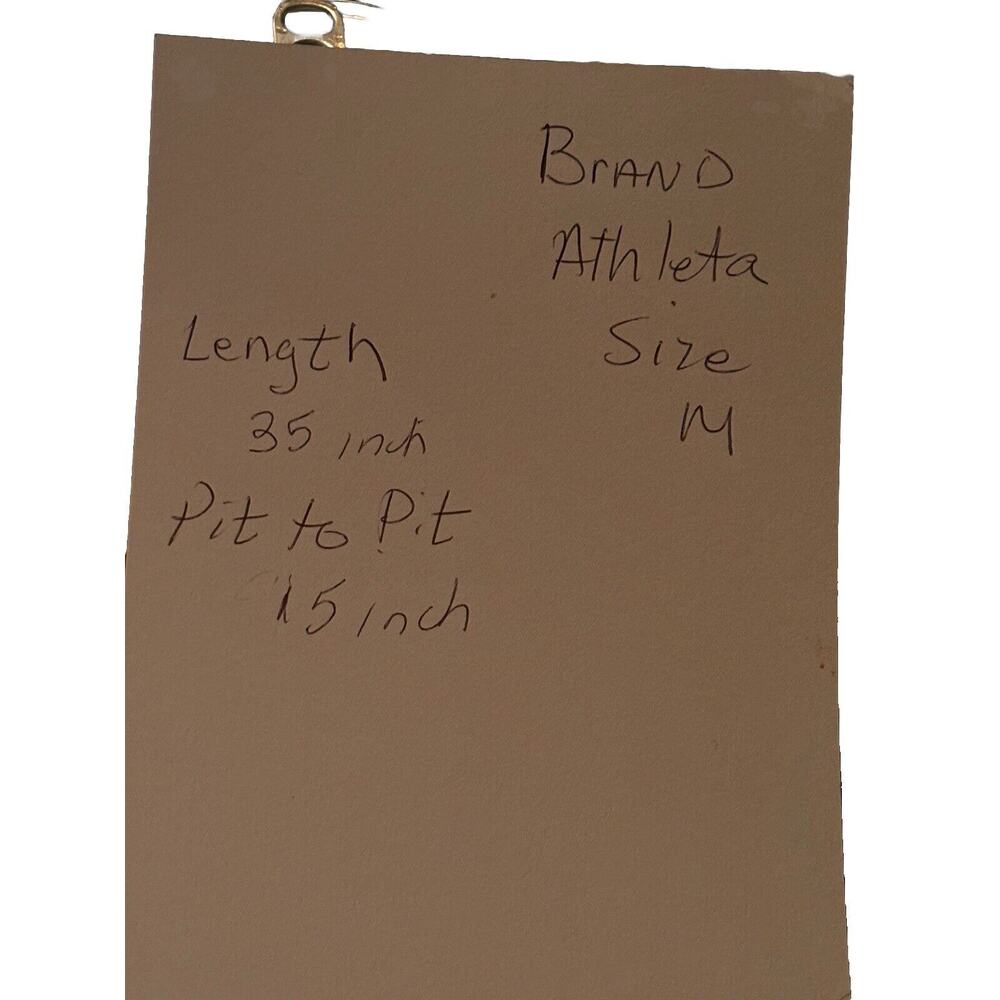 BrAND
Athleta
Size
M
Length
35 inch
Pit to Pit
15 inch